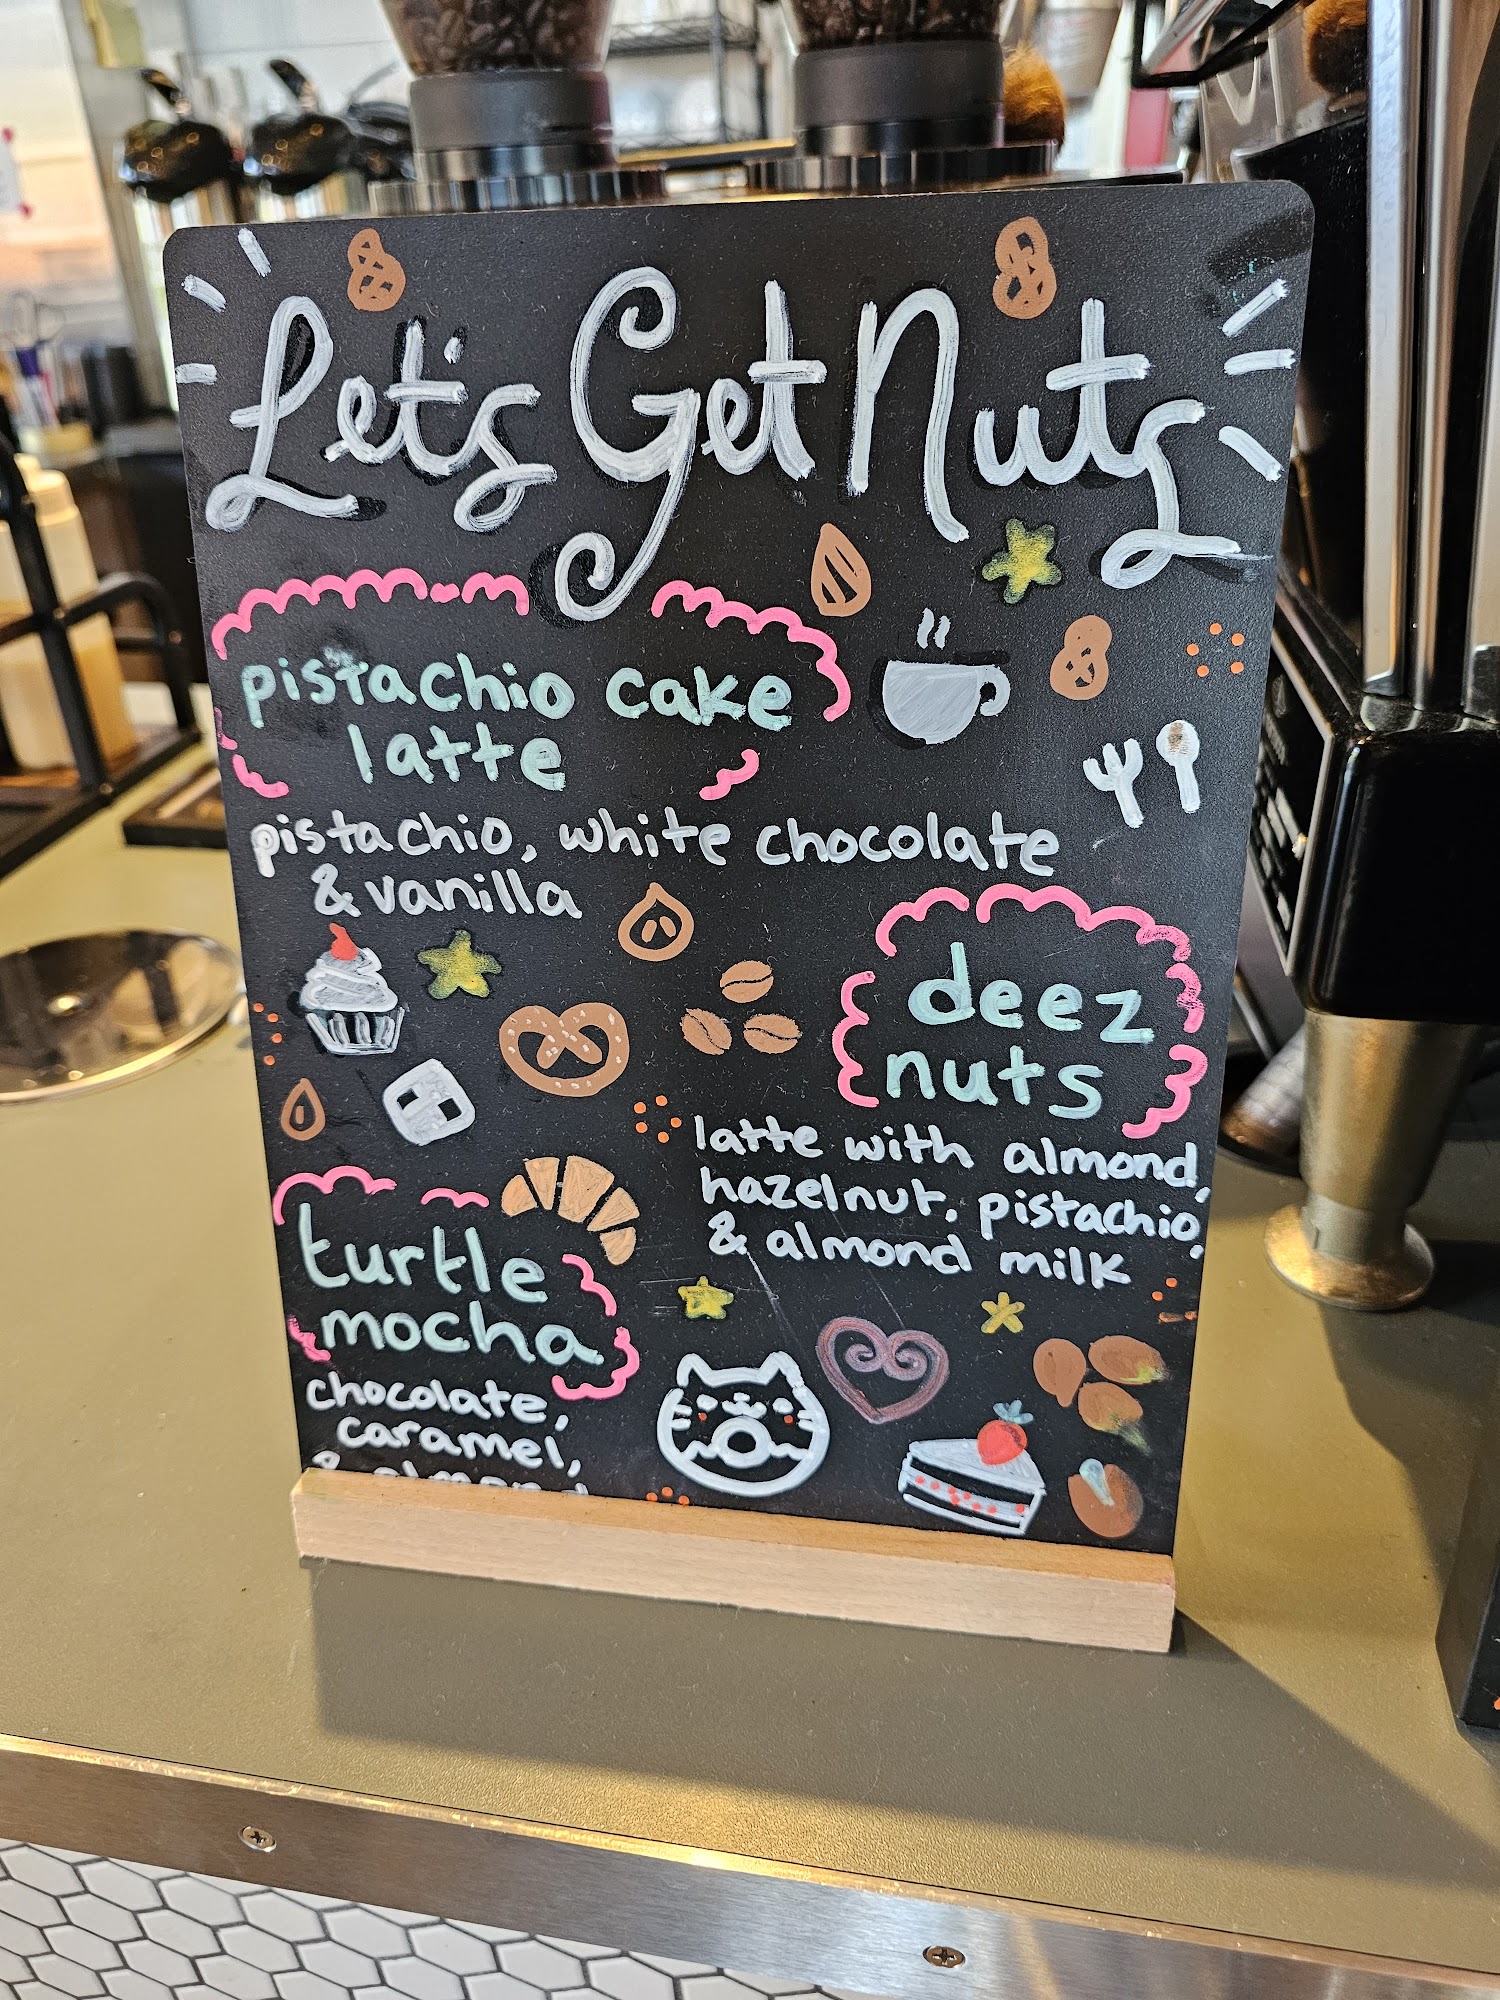 Let's Get Nuts
pistachio cake
latte
pistachio, white chocolate
& vanilla
deez
nuts
latte with almond,
hazelnut, pistachio,
& almond milk
turtle
mocha
chocolate,
caramel,
& almond